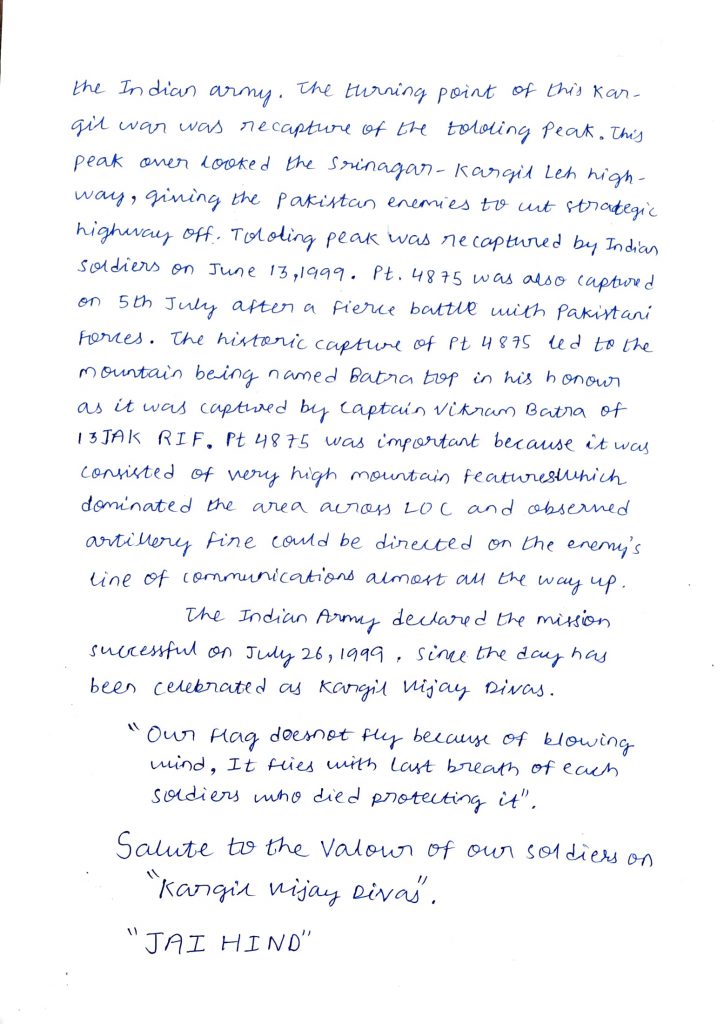 the Indian army. The turning point of this Kar-
gil war was recapture of the tololing Peak. This
peak over looked the Srinagar-Kargil Leh high-
way, giving the Pakistan enemies to cut strategic
highway off. Tololing peak was recaptured by Indian
soldiers on June 13,1999. Pt. 4875 was also captured
on 5th July after a fierce battle with Pakistani
forces. The historic capture of Pt 4875 led to the
mountain being named Batra top in his honour
as it was captured by Captain Vikram Batra of
13 JAK RIF. Pt 4875 was important because it was
consisted of very high mountain features which
dominated the area across LOC and observed
artillery fire could be directed on the enemy's
line of communications almost all the way up.
The Indian Army declared the mission
successful on July 26,1999. Since the day has
been celebrated as Kargil Vijay Divas.
"Our flag doesnot fly because of blowing
wind, It flies with last breath of each
soldiers who died protecting it".
Salute to the Valour of our soldiers on
"Kargil Vijay Divas".
"JAI HIND"